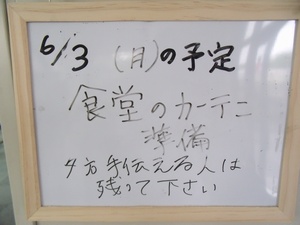 6/3 (月)の予定
食堂のカーテン
準備
夕方手伝える人は
残って下さい